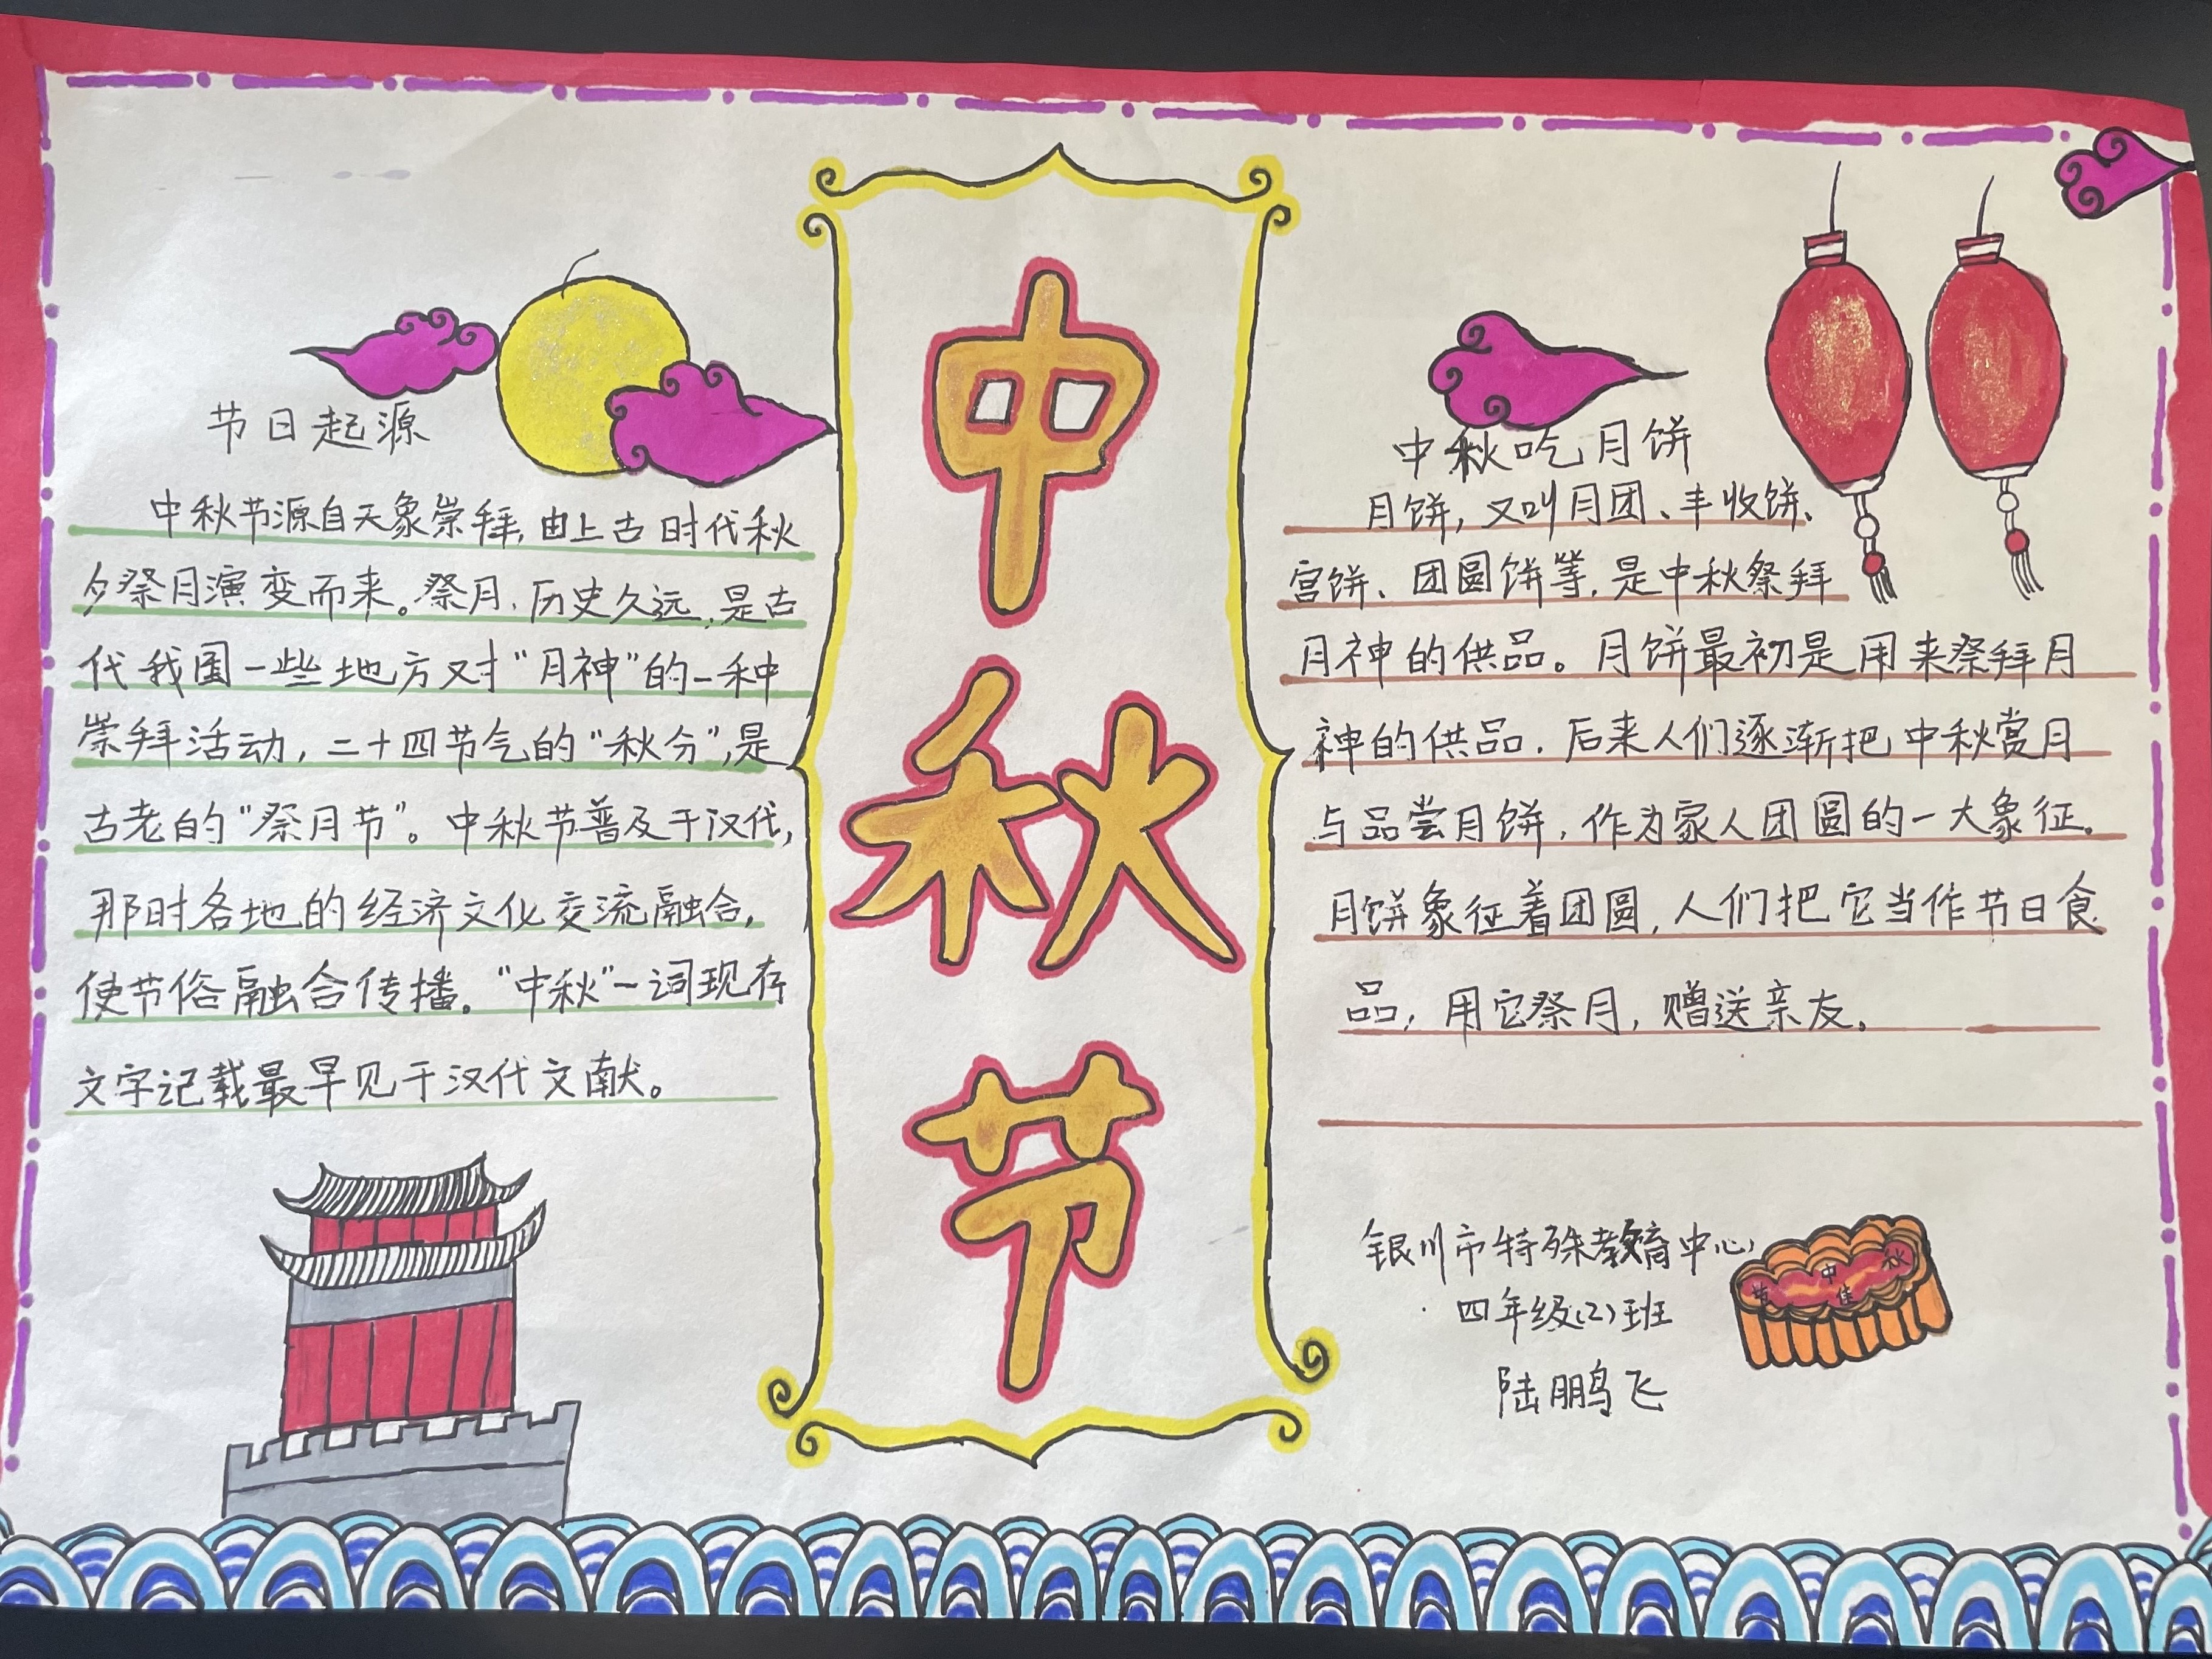 中秋节
节日起源
中秋节源自天象崇拜,由上古时代秋
夕祭月演变而来。祭月,历史久远,是古
代我国一些地方对“月神”的一种
崇拜活动,二十四节气的“秋分”,是
古老的“祭月节”。中秋节普及于汉代,
那时各地的经济文化交流融合,
使节俗融合传播。“中秋”一词现存
文字记载最早见于汉代文献。
中秋吃月饼
月饼,又叫月团、丰收饼、
宫饼、团圆饼等,是中秋祭拜
月神的供品。月饼最初是用来祭拜月
神的供品,后来人们逐渐把中秋赏月
与品尝月饼,作为家人团圆的一大象征。
月饼象征着团圆,人们把它当作节日食
品,用它祭月,赠送亲友。
银川市特殊教育中心
四年级(2)班
陆鹏飞
中秋
佳节